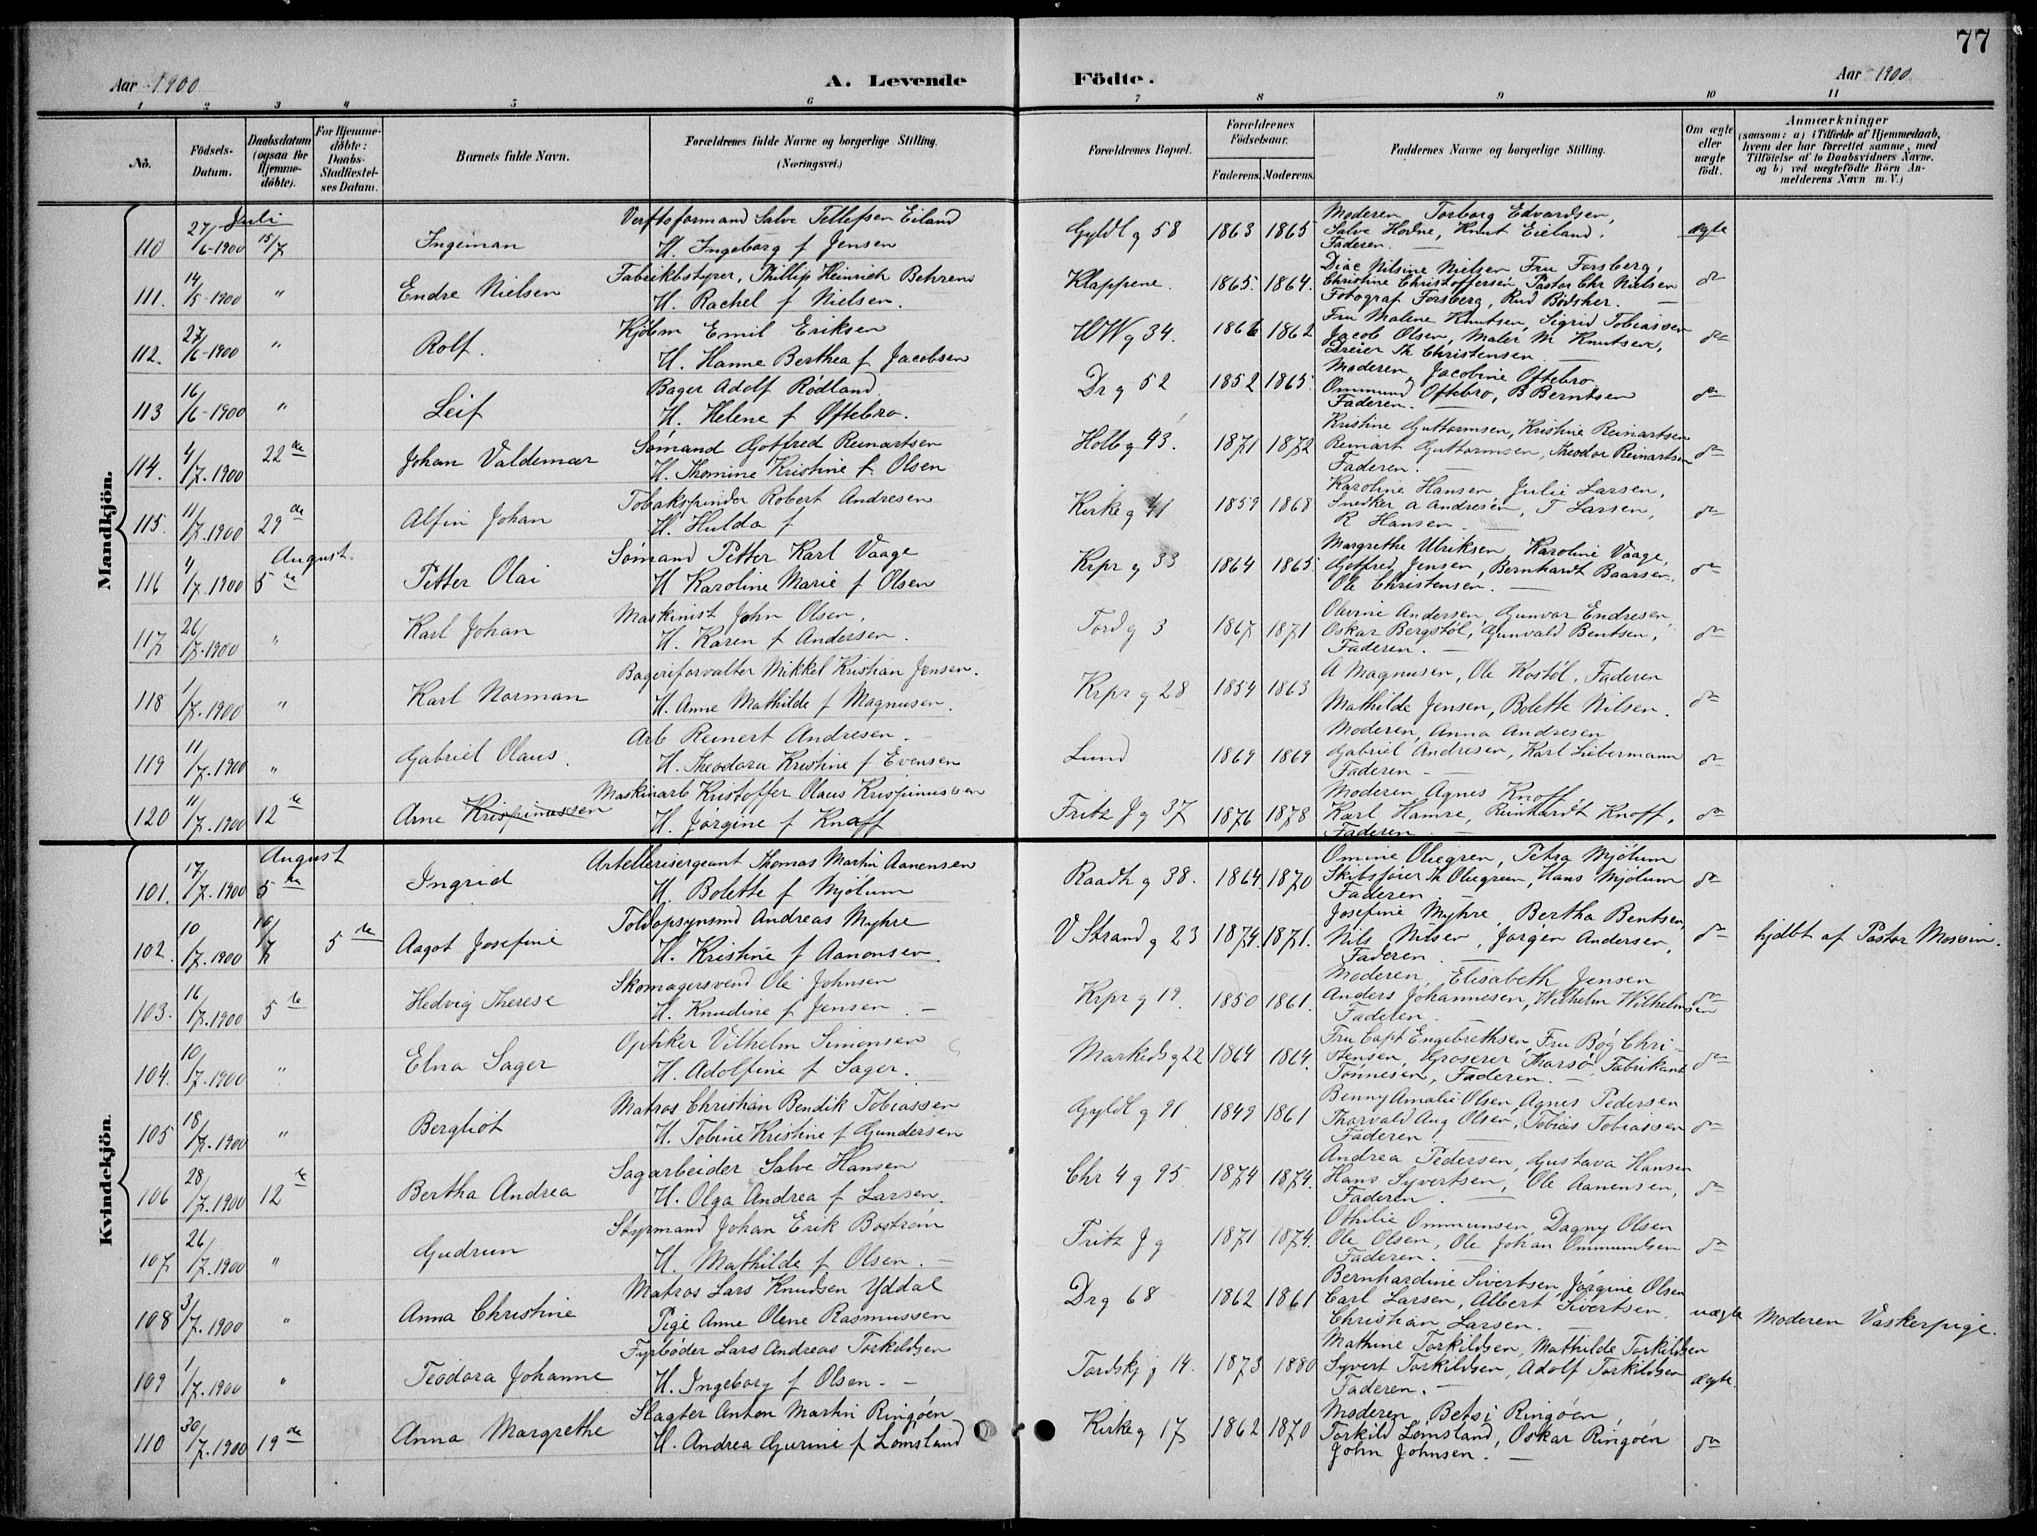 77
Aar 1900
A. Levende
Födte.
Aar 1900
1 2 3 4 5 6 7 8 9 10 11
No.
Födsels-Datum.
Daabsdatum (ogsaa for Hjemme-döbte).
For Hjemme-döbte: Daabs-Stadfæstel-ses Datum.
Barnets fulde Navn.
Forældrenes fulde Navne og borgerlige Stilling. (Næringsvei.)
Forældrenes Bopæl.
Forældrenes Födselsaar.
Faderens. Moderens.
Faddernes Navne og borgerlige Stilling.
Om ægte eller uægte födt.
Anmærkninger
(saasom: a) i Tilfælde af Hjemmedaab, hvem der har forrettet samme, med Tilföielse af to Daabsvidners Navne. og b) ved uægtefödte Börn An-melderens Navn m. V.)
Mandkjön.
Juli
110 27/6-1900 15/7 Ingeman
Verftsformand Salve Tellefsen Eiland
H. Ingeborg f Jensen
Gyldl g 58 1863 1865
Moderen Torborg Edvardsen,
Salve Hodne, Knut Eieland,
Faderen. —
ægte
111. 14/5-1900 " Endre Nielsen
Fabrikbstyrer, Phillip Heinrich Behrens
H. Rachel f Nielsen.
Klappene. 1865. 1864.
Diac Nilsine Nielsen Fru Forsberg,
Christine Christoffersen Pastor Chr Nielsen
Fotograf Forsberg, Rud Bødtker. —
do
112. 27/6-1900 " Rolf.
Kjøbm Emil Eriksen
H. Hanne Berthea f Jacobsen
HW g 34. 1866 1862
Fru Malene Knutsen, Sigrid Tobiassen
Jacob Olsen, Maler M Knutsen,
Dreier Th Christensen —
do
113 16/6-1900 " Leif
Bager Adolf Rødland
H. Helene f Øftebro.
Dr g 52 1852 1865
Moderen, Jacobine Oftebro
Ommund Oftebro, B Berntsen
Faderen. —
do
114. 4/7.1900 22de Johan Valdemar
Sømand Gotfred Reinartsen
H. Thomine Kristine f. Olsen
Holb g 43. 1871 1872
Kristine Guttormsen, Kristine Reinartsen
Reinart Guttormsen, Theodor Reinartsen
Faderen. —
do
115. 11/7.1900 29de Alfin Johan
Tobakspinder Robert Andresen
H. Hulda f
Kirke g 41 1859 1868
Karoline Hansen, Julie Larsen,
Snedker A Andresen, T Larsen,
R Hansen. —
do
August.
116 4/7.1900 5te Petter Olai
Sømand Petter Karl Vaage
H Karoline Marie f Olsen
Krpr g 33 1864 1865
Margrethe Ulriksen, Karoline Vaage,
Gotfred Jensen, Bernhardt Baarsen
Ole Christensen. —
do
117 26/7.1900 " Karl Johan
Maskinist John Olsen,
H. Karen f Andersen.
Tord g 3 1867 1871
Olevine Andersen, Gunvor Endresen,
Oskar Bergstøl, Gunvald Bentsen,
Faderen. —
do
118 1/7.1900 " Karl Norman
Bageriforvalter Mikkel Kristian Jensen.
H. Anne Mathilde f Magnusen.
Krpr g 28 1854 1863
A Magnusen, Ole Kostøl, Faderen
Mathilde Jensen, Bolette Nilsen.
do
119 11/7.1900 " Gabriel Olaus
Arb Reinert Andresen. —
H. Theodora Kristine f Evensen
Lund 1869 1869
Moderen, Anna Andresen
Gabriel Andresen, Karl Liebermann
Faderen —
do
120 11/7.1900 12te Arne Krispinussen
Maskinarb Kristoffer Olaus Krispinussen
H. Jørgine f Knoff
Fritz J g 37 1876 1878
Moderen Agnes Knoff
Karl Hamre, Reinhardt Knoff,
Faderen —
do
Kvindekjön.
August
101. 17/7.1900 5te Ingrid
Artellerisergeant Thomas Martin Aanensen
H. Bolette f Mjølum
Raadh g 38. 1864 1870
Omine Oliegren, Petra Mjølum
Skibsfører Th Oliegreen, Hans Mjølum
Faderen —
do
102. 10/7.1900 16/7 5te Aagot Josefine
Toldopsynsmd Andreas Myhre
H. Kristine f Aanonsen.
V Strand g 23 1874. 1871.
Josefine Myhre, Bertha Bentsen,
Nils Nilsen, Jørgen Andersen,
Faderen —
do
hjdbt af Pastor Mossin.
103. 16/7.1900 5te Hedvig Therese
Skomagersvend Ole Johnsen
H. Knudine f Jensen. —
Krpr g 19 1850 1861.
Moderen, Elisabeth Jensen
Anders Johannesen, Wilhelm Wilhelmsen
Faderen. —
do
104. 10/7.1900 " Elna Sager
Optiker Vilhelm Simonsen
H. Adolfine f Sager.
Markeds g 22 1864 1864.
Fru Capt Engebrethsen, Fru Bog Chri-
stensen, Groserer Thorsø, Fabrikant
Tønnesen, Faderen. —
do
105 18/7.1900 " Bergliot
Matros Christian Bendik Tobiassen
H. Tobine Kristine f Gundersen
Gyldl g 91 1849 1861
Benny Amalie Olsen, Agnes Pedersen
Thorvald Aug Olsen, Tobias Tobiassen
Faderen —
do
106 28/7.1900 12te Bertha Andrea
Sagarbeider Salve Hansen
H. Olga Andrea f Larsen.
Chr 4 g 95 1874 1874.
Andrea Pedersen, Gustava Hansen
Hans Syvertsen, Ole Aanensen,
Faderen. —
do
107 26/7.1900 " Gudrun
Styrmand Johan Erik Bostrøm
H. Mathilde f Olsen. —
Fritz J g 1871 1874.
Othilie Ommunsen, Dagny Olsen
Ole Olsen, Ole Johan Ommundsen
Faderen. —
do
108 3/7.1900 " Anna Christine
Matros Lars Knudsen Yddal
Pige Anne Olene Rasmussen
Dr g 68 1862 1861
Bernhardine Sivertsen, Jørgine Olsen
Carl Larsen, Albert Sivertsen,
Christian Larsen. —
uægte
Moderen Vaskerpige.
109 1/7.1900 " Teodora Johanne
Fyrbøder Lars Andreas Torkildsen
H. Ingeborg f Olsen. —
Tordskj g 14. 1873 1880
Mathine Torkildsen, Mathilde Torkildsen
Syvert Torkildsen, Adolf Torkildsen
Faderen. —
ægte.
110 30/7.1900 19de Anna Margrethe
Slagter Anton Martin Ringøen
H. Andrea Gurine f Lomsland
Kirke g 17 1862 1870
Moderen, Betsi Ringøen,
Torkild Lomsland, Oskar Ringøen
John Johnsen. —
do